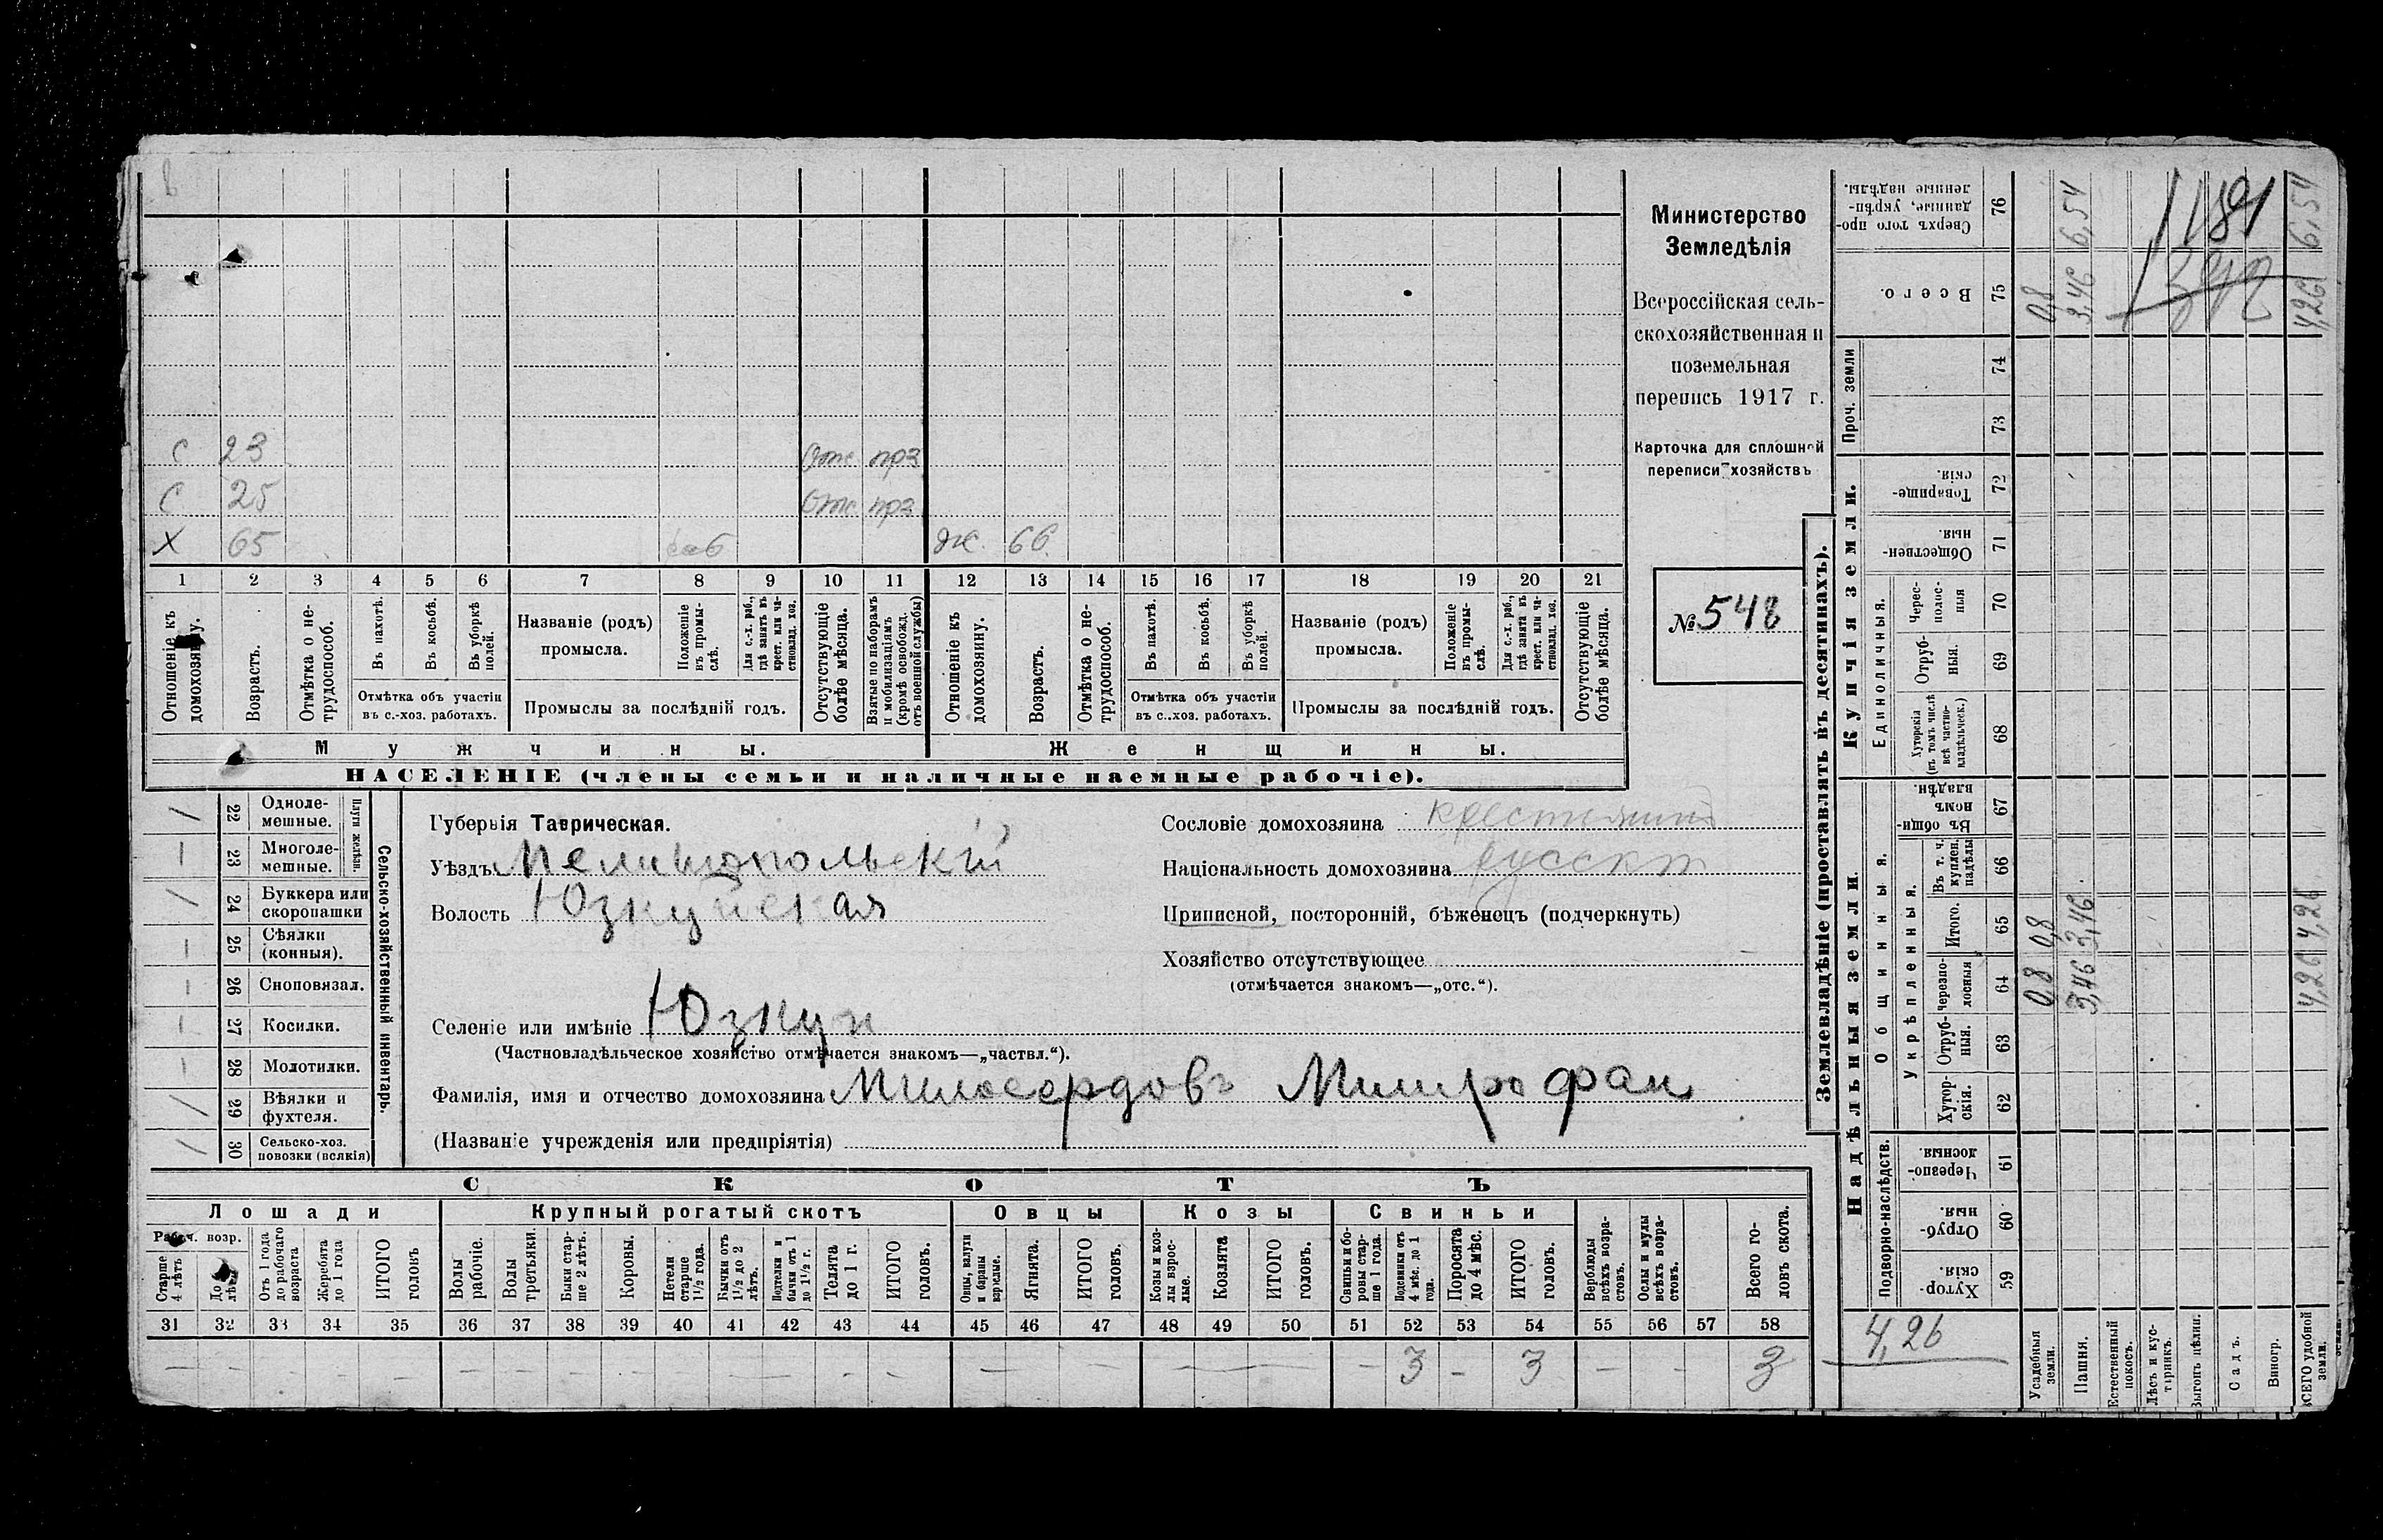 Министерство
Земледѣлія
Всероссійская сель-
скохозяйственная и
поземельная
перепись 1917 г.
Карточка для сплошной
переписи хозяйствъ
№ 548
С 23 Отс прз
С 25 Отс прз
Х 65 раб ж. 66
1 2 3 4 5 6 7 8 9 10 11 12 13 14 15 16 17 18 19 20 21
Отношеніе къ домохозяину.
Возрастъ.
Отмѣтка о не-
трудоспособ.
Въ пахотѣ.
Въ косьбѣ.
Въ уборкѣ
полей.
Отмѣтка объ участіи
въ с.-хоз. работахъ.
Названіе (родъ)
промысла.
Положеніе
въ промы-
слѣ.
Для с.-х. раб.,
гдѣ занятъ въ
крест. или ча-
стновлад. хоз.
Промыслы за послѣдній годъ.
Отсутствующіе
болѣе мѣсяца.
Взятые по наборамъ
и мобилизаціямъ
(кромѣ освобожд.
отъ военной службы)
Отношеніе къ
домохозяину.
Возрастъ.
Отмѣтка о не-
трудоспособ.
Въ пахотѣ.
Въ косьбѣ.
Въ уборкѣ
полей.
Отмѣтка объ участіи
въ с..хоз. работахъ.
Названіе (родъ)
промысла.
Положеніе
въ промы-
слѣ.
Для с.-х. раб.,
гдѣ занята въ
крест. или ча-
стновлад. хоз.
Промыслы за послѣдній годъ.
Отсутствующіе
болѣе мѣсяца.
Мужчины. Женщины.
НАСЕЛЕНІЕ (члены семьи и наличные наемные рабочіе).
22 Одноле-
мешные.
23 Многоле-
мешные.
Плуги желѣзн.
24 Буккера или
скоропашки
25 Сѣялки
(конныя).
26 Сноповязал.
27 Косилки.
28 Молотилки.
29 Вѣялки и
фухтеля.
30 Сельско-хоз.
повозки (всякія)
Сельско-хозяйственный инвентарь.
Губернія Таврическая.
Уѣздъ Мелитопольскій
Волость Юзкуйская
Селеніе или имѣніе Юзкуи
(Частновладѣльческое хозяйство отмѣчается знакомъ—„частвл.“).
Фамилія, имя и отчество домохозяина Милосердовъ Митрофан
(Названіе учрежденія или предпріятія)
Сословіе домохозяина крестьянинъ
Національность домохозяина русскій
Приписной, посторонній, бѣженецъ (подчеркнуть)
Хозяйство отсутствующее
(отмѣчается знакомъ—„отс.“).
СКОТЪ
Лошади Крупный рогатый скотъ Овцы Козы Свиньи
Рабоч. возр.
Старше
4 лѣтъ
Отъ 1 года
до рабочаго
возраста
Жеребята
до 1 года
ИТОГО
головъ
Волы
рабочіе.
Волы
третьяки.
Быки стар-
ше 2 лѣтъ.
Коровы.
Нетели
старше
1½ года.
Бычки отъ
1½ до 2
лѣтъ.
Подтелки и
бычки отъ 1
до 1½ г.
Телята
до 1 г.
ИТОГО
головъ.
Овцы, валухи
и бараны
взрослые.
Ягнята.
ИТОГО
головъ.
Козы и коз-
лы взрос-
лые.
Козлята
ИТОГО
головъ.
Свиньи и бо-
ровы стар-
ше 1 года.
Подсвинки отъ
4 мѣс. до 1
года.
Поросята
до 4 мѣс.
ИТОГО
головъ.
Верблюды
всѣхъ возра-
стовъ.
Ослы и мулы
всѣхъ возра-
стовъ.
Всего го-
ловъ скота.
31 32 33 34 35 36 37 38 39 40 41 42 43 44 45 46 47 48 49 50 51 52 53 54 55 56 57 58
3 3 3
Землевладѣніе (проставлять въ десятинахъ).
Надѣльныя земли.
Купчія земли.
Проч. земли
Подворно-наслѣдств.
Общинныя.
Укрѣпленныя.
Единоличныя.
Сверхъ того про-
данные, укрѣп-
ленные надѣлы. 76
Всего. 75
74
73
Товарище-
скія. 72
Обществен-
ныя. 71
Черес-
полос-
ныя 70
Отруб-
ныя. 69
Хуторскія
(въ томъ числѣ
всѣ частно-
владѣльческ.) 68
Въ общин-
номъ
владѣн. 67
Въ т. ч.
куплен.
надѣлы 66
Итого. 65
Черезпо-
лосныя 64
Отруб-
ныя. 63
Хутор-
скія. 62
Черезпо-
лосныя. 61
Отруб-
ныя. 60
Хутор-
скія. 59
4,26
Усадебныя
земли. 0,8 0,8 0,8
Пашня. 3,46 3,46 3,46 6,54
Естественный
покосъ.
Лѣсъ и кус-
тарникъ.
Выгонъ цѣлин.
Садъ.
Виногр.
ВСЕГО удобной
земли. 4,26 4,26 4,26 6,54